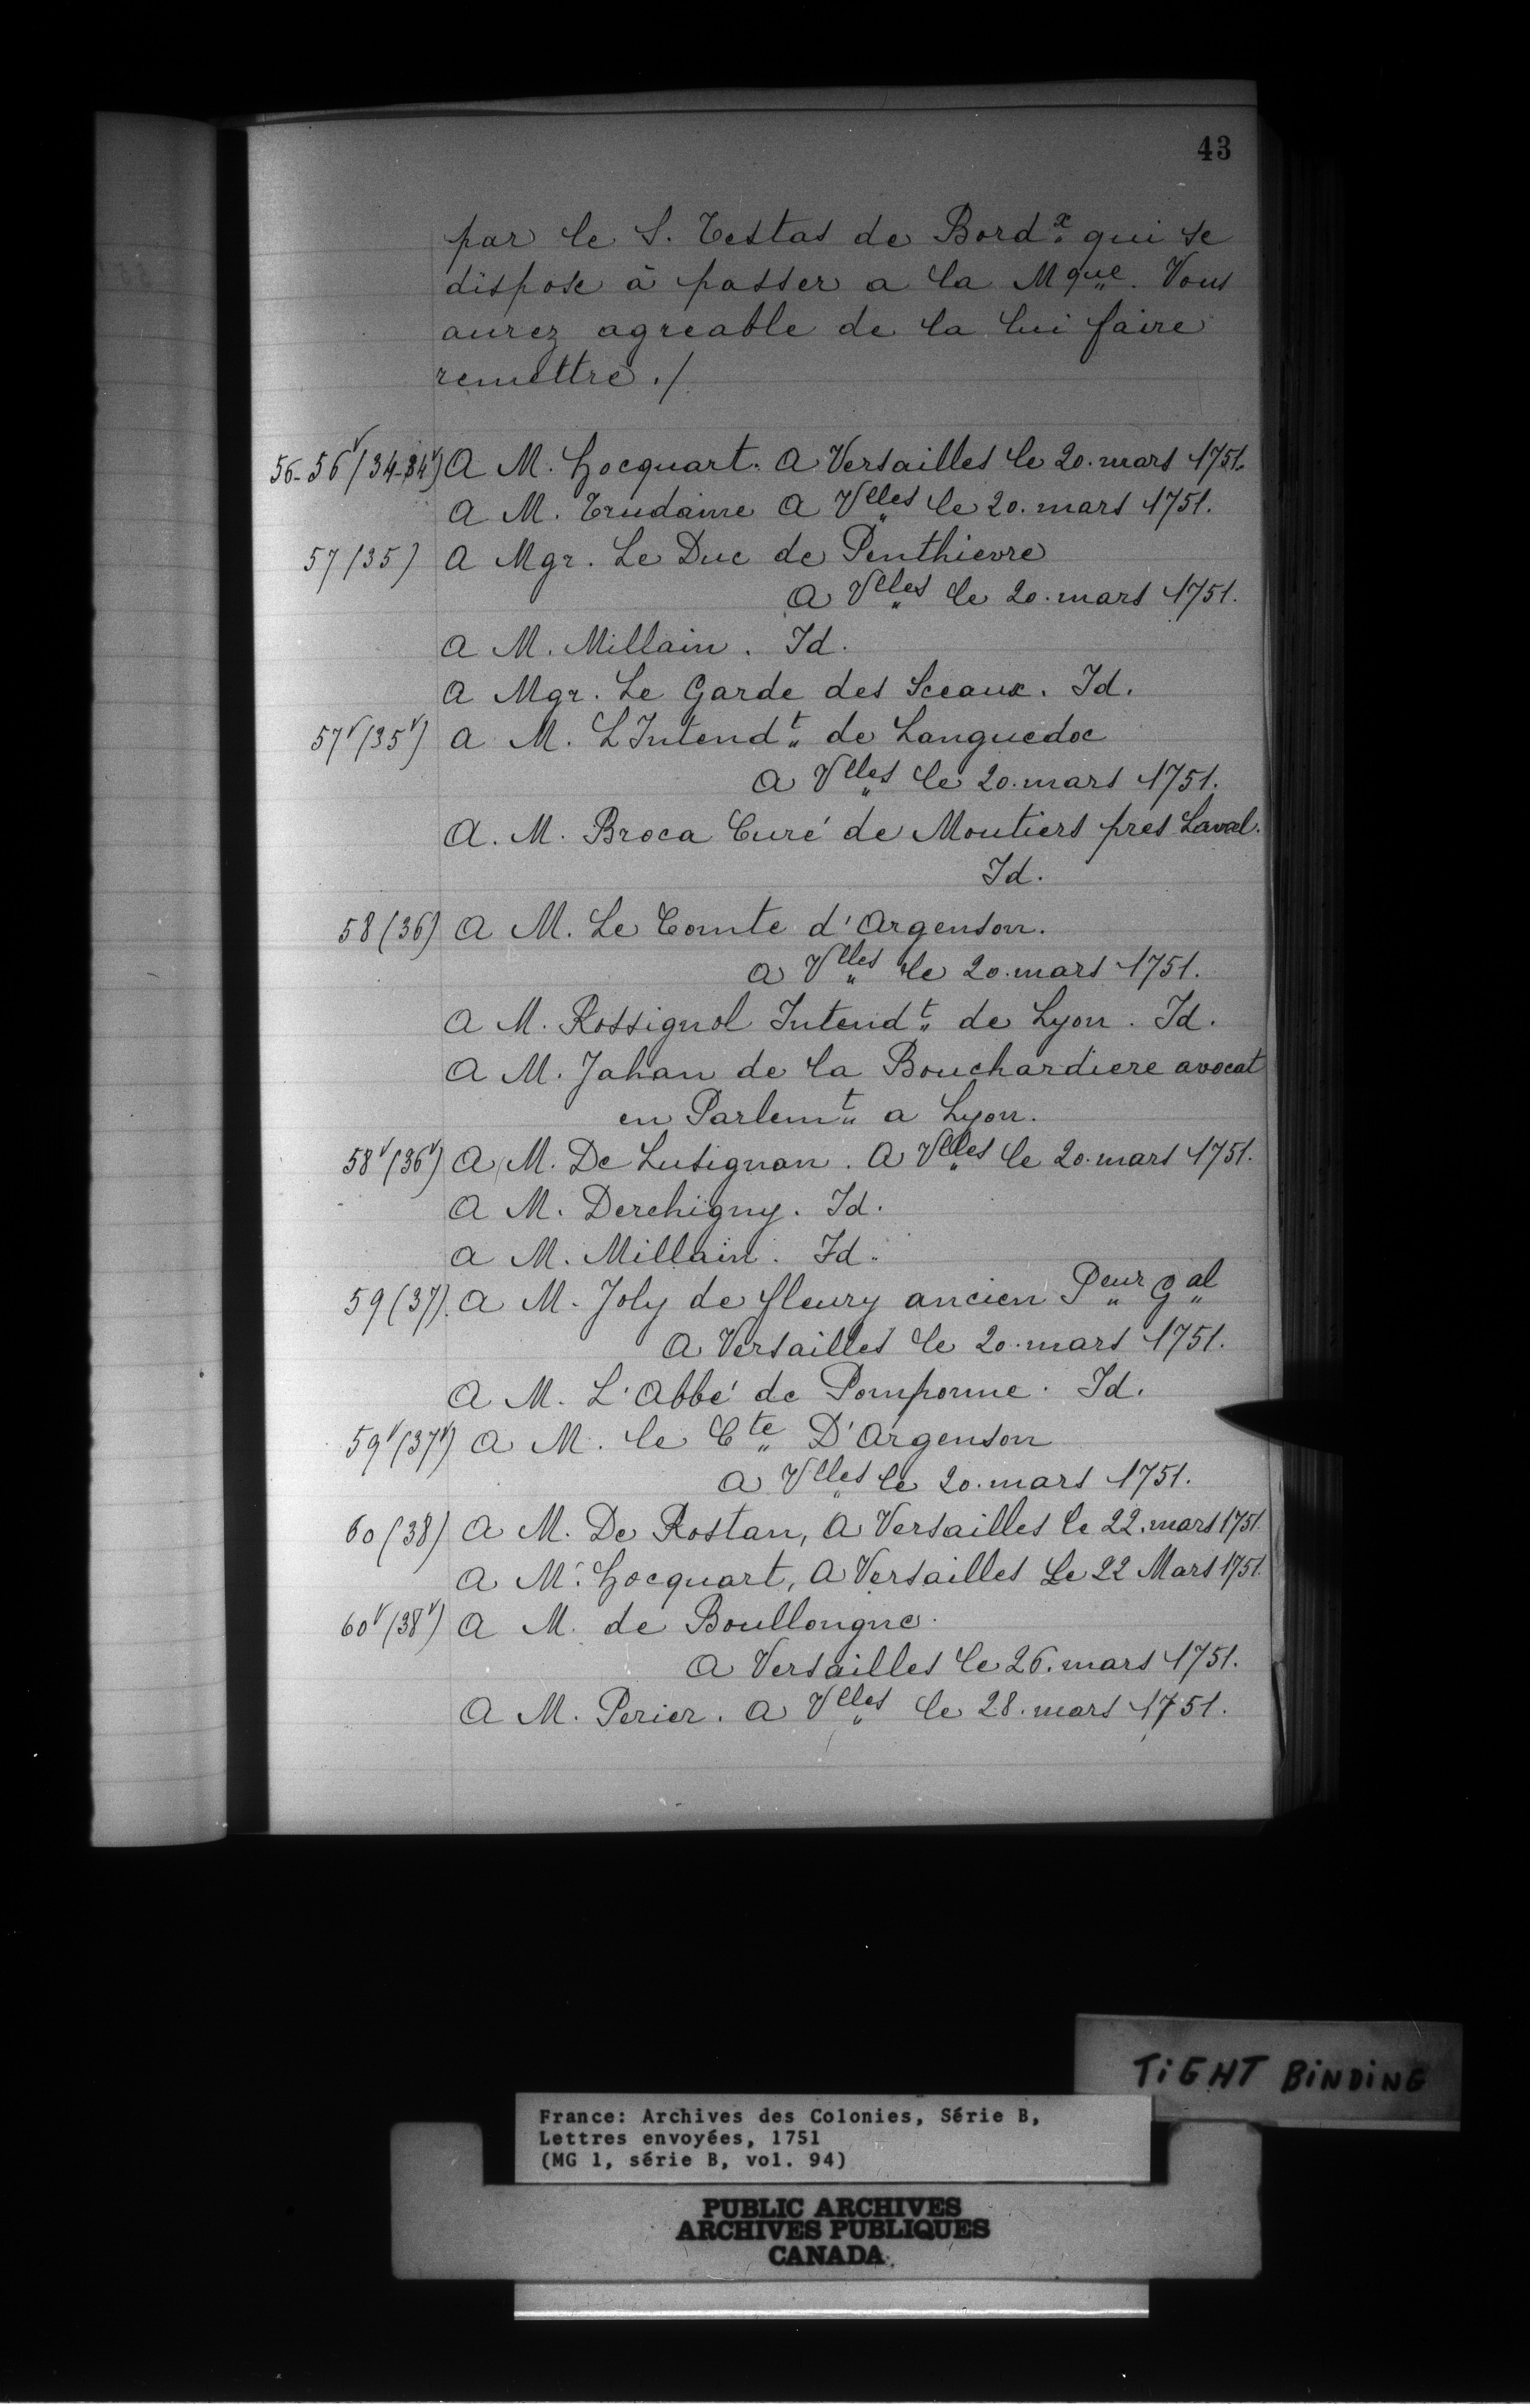 43
par le S. Testas de Bordx. qui se
dispose à passer a la Mque. Vous
aurez agreable de la lui faire
remettre ./
56-56v (34-34v) A M. hocquart. A Versailles le 20. mars 1751.
A M. Trudaine A Vlles le 20. mars 1751.
57 (35) A Mgr. Le Duc de Penthievre
A Vlles le 20. mars 1751.
A M. Millain. Id.
A Mgr. Le Garde des Sceaux. Id.
57v (35v) A M. L'Intendt de Languedoc
A Vlles le 20. mars 1751.
A. M. Broca Curé de Moutiers pres Laval.
Id.
58 (36) A M. Le Comte d'Argenson.
A Vlles le 20. mars 1751.
A M. Rossignol Intendt de Lyon. Id.
A M. Jahan de la Bouchardiere avocat
en Parlemt a Lyon.
58v (36v) A M. De Lusignan. A Vlles le 20. mars 1751.
A M. Derchigny. Id.
A M. Millain. Id.
59 (37). A M. Joly de fleury ancien Peur Gal
A Versailles le 20. mars 1751.
A M. L'Abbé de Pomponne. Id.
59v (37v) A M. le Cte D'Argenson
A Vlles le 20. mars 1751.
60 (38) A M. De Rostan, A Versailles le 22. mars 1751.
A M. hocquart, A Versailles Le 22 Mars 1751.
60v (38v) A M. de Boullongne.
A Versailles le 26. mars 1751.
A M. Perier. A Vlles le 28. mars 1751.
TIGHT BINDING
France: Archives des Colonies, Série B,
Lettres envoyées, 1751
(MG 1, série B, vol. 94)
PUBLIC ARCHIVES
ARCHIVES PUBLIQUES
CANADA